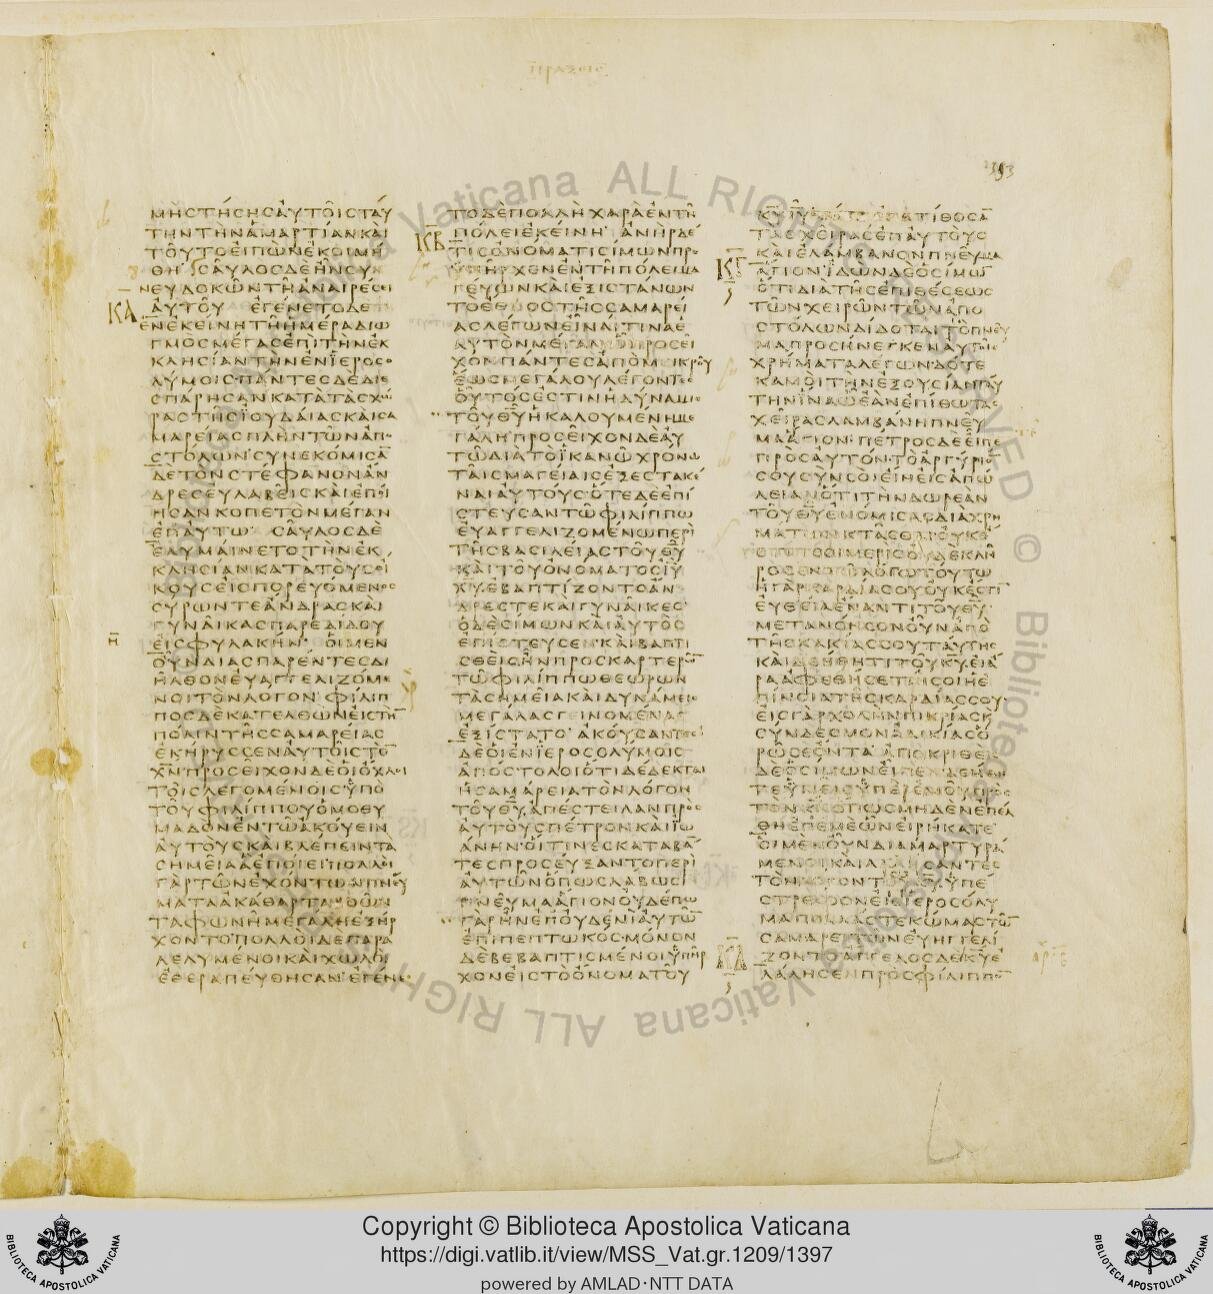 ΠΡΑΞΕΙΣ
ΜΗϹΤΗϹΗϹΑΥΤΟΙϹΤΑΥ
ΤΗΝΤΗΝΑΜΑΡΤΙΑΝΚΑΙ
ΤΟΥΤΟΕΙΠΩΝΕΚΟΙΜΗ
ΘΗ ϹΑΥΛΟϹΔΕΗΝϹΥΝ
ΝΕΥΔΟΚΩΝΤΗΑΝΑΙΡΕϹΕΙ
ΚΑ
ΑΥΤΟΥ ΕΓΕΝΕΤΟΔΕ
ΕΝΕΚΕΙΝΗΤΗΗΜΕΡΑΔΙΩ
ΓΜΟϹΜΕΓΑϹΕΠΙΤΗΝΕΚ
ΚΛΗϹΙΑΝΤΗΝΕΝΙΕΡΟϹΟ
ΛΥΜΟΙϹ·ΠΑΝΤΕϹΔΕΔΙΕ
ϹΠΑΡΗϹΑΝΚΑΤΑΤΑϹΧΩ
ΡΑϹΤΗϹΙΟΥΔΑΙΑϹΚΑΙϹΑ
ΜΑΡΕΙΑϹΠΛΗΝΤΩΝΑΠΟ
ϹΤΟΛΩΝ·ϹΥΝΕΚΟΜΙϹΑ̅
ΔΕΤΟΝϹΤΕΦΑΝΟΝΑΝ
ΔΡΕϹΕΥΛΑΒΕΙϹΚΑΙΕΠΟΙ
ΗϹΑΝΚΟΠΕΤΟΝΜΕΓΑΝ
ΕΠΑΥΤΩ· ϹΑΥΛΟϹΔΕ
ΕΛΥΜΑΙΝΕΤΟΤΗΝΕΚ
ΚΛΗϹΙΑΝΚΑΤΑΤΟΥϹΟΙ
ΚΟΥϹΕΙϹΠΟΡΕΥΟΜΕΝΟϹ
ϹΥΡΩΝΤΕΑΝΔΡΑϹΚΑΙ
ΓΥΝΑΙΚΑϹΠΑΡΕΔΙΔΟΥ
Η
ΕΙϹΦΥΛΑΚΗΝ· ΟΙΜΕΝ
ΟΥΝΔΙΑϹΠΑΡΕΝΤΕϹΔΙ
ΗΛΘΟΝΕΥΑΓΓΕΛΙΖΟΜΕ
ΝΟΙΤΟΝΛΟΓΟΝ·ΦΙΛΙΠ
ΠΟϹΔΕΚΑΤΕΛΘΩΝΕΙϹΤΗ̅
ΠΟΛΙΝΤΗϹϹΑΜΑΡΕΙΑϹ
ΕΚΗΡΥϹϹΕΝΑΥΤΟΙϹΤΟ̅
Χ̅Ν̅·ΠΡΟϹΕΙΧΟΝΔΕΟΙΟΧΛΟΙ
ΤΟΙϹΛΕΓΟΜΕΝΟΙϹΥΠΟ
ΤΟΥΦΙΛΙΠΠΟΥΟΜΟΘΥ
ΜΑΔΟΝΕΝΤΩΑΚΟΥΕΙΝ
ΑΥΤΟΥϹΚΑΙΒΛΕΠΕΙΝΤΑ
ϹΗΜΕΙΑΑΕΠΟΙΕΙ·ΠΟΛΛΟΙ
ΓΑΡΤΩΝΕΧΟΝΤΩΝΠΝΕΥ
ΜΑΤΑΑΚΑΘΑΡΤΑΒΟΩΝ
ΤΑΦΩΝΗΜΕΓΑΛΗΕΞΗΡ
ΧΟΝΤΟ·ΠΟΛΛΟΙΔΕΠΑΡΑ
ΛΕΛΥΜΕΝΟΙΚΑΙΧΩΛΟΙ
ΕΘΕΡΑΠΕΥΘΗϹΑΝ·ΕΓΕΝΕ
ΤΟΔΕΠΟΛΛΗΧΑΡΑΕΝΤΗ
ΚΒ
ΠΟΛΕΙΕΚΕΙΝΗ· ΑΝΗΡΔΕ
ΤΙϹΟΝΟΜΑΤΙϹΙΜΩΝΠΡΟ
ΥΠΗΡΧΕΝΕΝΤΗΠΟΛΕΙΜΑ
ΓΕΥΩΝΚΑΙΕΞΙϹΤΑΝΩΝ
ΤΟΕΘΝΟϹΤΗϹϹΑΜΑΡΕΙ
ΑϹΛΕΓΩΝΕΙΝΑΙΤΙΝΑΕ
ΑΥΤΟΝΜΕΓΑΝΩΠΡΟϹΕΙ
ΧΟΝΠΑΝΤΕϹΑΠΟΜΙΚΡΟΥ
ΕΩϹΜΕΓΑΛΟΥΛΕΓΟΝΤΕϹ
ΟΥΤΟϹΕϹΤΙΝΗΔΥΝΑΜΙϹ
ΤΟΥΘ̅Υ̅ΗΚΑΛΟΥΜΕΝΗΜΕ
ΓΑΛΗ·ΠΡΟϹΕΙΧΟΝΔΕΑΥ
ΤΩΔΙΑΤΟΙΚΑΝΩΧΡΟΝΩ
ΤΑΙϹΜΑΓΕΙΑΙϹΕΞΕϹΤΑΚΕ
ΝΑΙΑΥΤΟΥϹ·ΟΤΕΔΕΕΠΙ
ϹΤΕΥϹΑΝΤΩΦΙΛΙΠΠΩ
ΕΥΑΓΓΕΛΙΖΟΜΕΝΩΠΕΡΙ
ΤΗϹΒΑϹΙΛΕΙΑϹΤΟΥΘ̅Υ̅
ΚΑΙΤΟΥΟΝΟΜΑΤΟϹΙ̅Υ̅
Χ̅Υ̅ΕΒΑΠΤΙΖΟΝΤΟΑΝ
ΔΡΕϹΤΕΚΑΙΓΥΝΑΙΚΕϹ·
ΟΔΕϹΙΜΩΝΚΑΙΑΥΤΟϹ
ΕΠΙϹΤΕΥϹΕΝ·ΚΑΙΒΑΠΤΙ
ϹΘΕΙϹΗΝΠΡΟϹΚΑΡΤΕΡΩ̅
ΤΩΦΙΛΙΠΠΩΘΕΩΡΩΝ
ΤΑϹΗΜΕΙΑΚΑΙΔΥΝΑΜΕΙϹ
ΜΕΓΑΛΑϹΓΕΙΝΟΜΕΝΑϹ
ΕΞΙϹΤΑΤΟ· ΑΚΟΥϹΑΝΤΕϹ
ΔΕΟΙΕΝΙΕΡΟϹΟΛΥΜΟΙϹ
ΑΠΟϹΤΟΛΟΙΟΤΙΔΕΔΕΚΤΑΙ
ΗϹΑΜΑΡΕΙΑΤΟΝΛΟΓΟΝ
ΤΟΥΘ̅Υ̅ΑΠΕϹΤΕΙΛΑΝΠΡΟϹ
ΑΥΤΟΥϹΠΕΤΡΟΝΚΑΙΙΩ
ΑΝΗΝ·ΟΙΤΙΝΕϹΚΑΤΑΒΑ̅
ΤΕϹΠΡΟϹΕΥΞΑΝΤΟΠΕΡΙ
ΑΥΤΩΝΟΠΩϹΛΑΒΩϹΙ
ΠΝΕΥΜΑΑΓΙΟΝΟΥΔΕΠΩ
ΓΑΡΗΝΕΠΟΥΔΕΝΙΑΥΤΩ̅
ΕΠΙΠΕΠΤΩΚΟϹ·ΜΟΝΟΝ
ΔΕΒΕΒΑΠΤΙϹΜΕΝΟΙΥΠΗΡ
ΧΟΝΕΙϹΤΟΟΝΟΜΑΤΟΥ
Κ̅Υ̅Ι̅Υ̅ΕΠΕΤΙΘΟϹΑ̅
ΤΑϹΧΕΙΡΑϹΕΠΑΥΤΟΥϹ
ΚΑΙΕΛΑΜΒΑΝΟΝΠΝΕΥΜΑ
ΚΓ
ΑΓΙΟΝ·ΙΔΩΝΔΕΟϹΙΜΩ̅
ΟΤΙΔΙΑΤΗϹΕΠΙΘΕϹΕΩϹ
ΤΩΝΧΕΙΡΩΝΤΩΝΑΠΟ
ϹΤΟΛΩΝΔΙΔΟΤΑΙΤΟΠΝΕΥ
ΜΑΠΡΟϹΗΝΕΓΚΕΝΑΥΤΟΙϹ
ΧΡΗΜΑΤΑΛΕΓΩΝ·ΔΟΤΕ
ΚΑΜΟΙΤΗΝΕΞΟΥϹΙΑΝΤΑΥ
ΤΗΝΙΝΑΩΕΑΝΕΠΙΘΩΤΑϹ
ΧΕΙΡΑϹΛΑΜΒΑΝΗΠΝΕΥ
ΜΑΑΓΙΟΝ·ΠΕΤΡΟϹΔΕΕΙΠΕ
ΠΡΟϹΑΥΤΟΝ·ΤΟΑΡΓΥΡΙΟ̅
ϹΟΥϹΥΝϹΟΙΕΙΗΕΙϹΑΠΩ
ΛΕΙΑΝΟΤΙΤΗΝΔΩΡΕΑΝ
ΤΟΥΘ̅Υ̅ΕΝΟΜΙϹΑϹΔΙΑΧΡΗ
ΜΑΤΩΝΚΤΑϹΘΑΙ·ΟΥΚΕ
ϹΤΙΝϹΟΙΜΕΡΙϹΟΥΔΕΚΛΗ
ΡΟϹΕΝΤΩΛΟΓΩΤΟΥΤΩ
ΗΓΑΡΚΑΡΔΙΑϹΟΥΟΥΚΕϹΤΙ̅
ΕΥΘΕΙΑΕΝΑΝΤΙΤΟΥΘ̅Υ̅·
ΜΕΤΑΝΟΗϹΟΝΟΥΝΑΠΟ
ΤΗϹΚΑΚΙΑϹϹΟΥΤΑΥΤΗϹ
ΚΑΙΔΕΗΘΗΤΙΤΟΥΚ̅Υ̅·ΕΙΑ
ΡΑΑΦΕΘΗϹΕΤΑΙϹΟΙΗΕ
ΠΙΝΟΙΑΤΗϹΚΑΡΔΙΑϹϹΟΥ·
ΕΙϹΓΑΡΧΟΛΗΝΠΙΚΡΙΑϹΚ
ϹΥΝΔΕϹΜΟΝΑΔΙΚΙΑϹΟ
ΡΩϹΕΟΝΤΑ· ΑΠΟΚΡΙΘΕΙϹ
ΔΕΟϹΙΜΩΝΕΙΠΕΝ·ΔΕΗΘΗ
ΤΕΥΜΕΙϹΥΠΕΡΕΜΟΥΠΡΟϹ
ΤΟΝΚ̅Ν̅ΟΠΩϹΜΗΔΕΝΕΠΕΛ
ΘΗΕΠΕΜΕΩΝΕΙΡΗΚΑΤΕ·
ΟΙΜΕΝΟΥΝΔΙΑΜΑΡΤΥΡΑ
ΜΕΝΟΙΚΑΙΛΑΛΗϹΑΝΤΕϹ
ΤΟΝΛΟΓΟΝΤΟΥΚ̅Υ̅ΥΠΕ
ϹΤΡΕΦΟΝΕΙϹΙΕΡΟϹΟΛΥ
ΜΑΠΟΛΛΑϹΤΕΚΩΜΑϹΤΩ̅
ϹΑΜΑΡΕΙΤΩΝΕΥΗΓΓΕΛΙ
ΚΔ
ΖΟΝΤΟ·ΑΓΓΕΛΟϹΔΕΚ̅Υ̅Ε
ΛΑΛΗϹΕΝΠΡΟϹΦΙΛΙΠΠΟ̅
BIBLIOTECA APOSTOLICA VATICANA
Copyright © Biblioteca Apostolica Vaticana
https://digi.vatlib.it/view/MSS_Vat.gr.1209/1397
powered by AMLAD·NTT DATA
BIBLIOTECA APOSTOLICA VATICANA